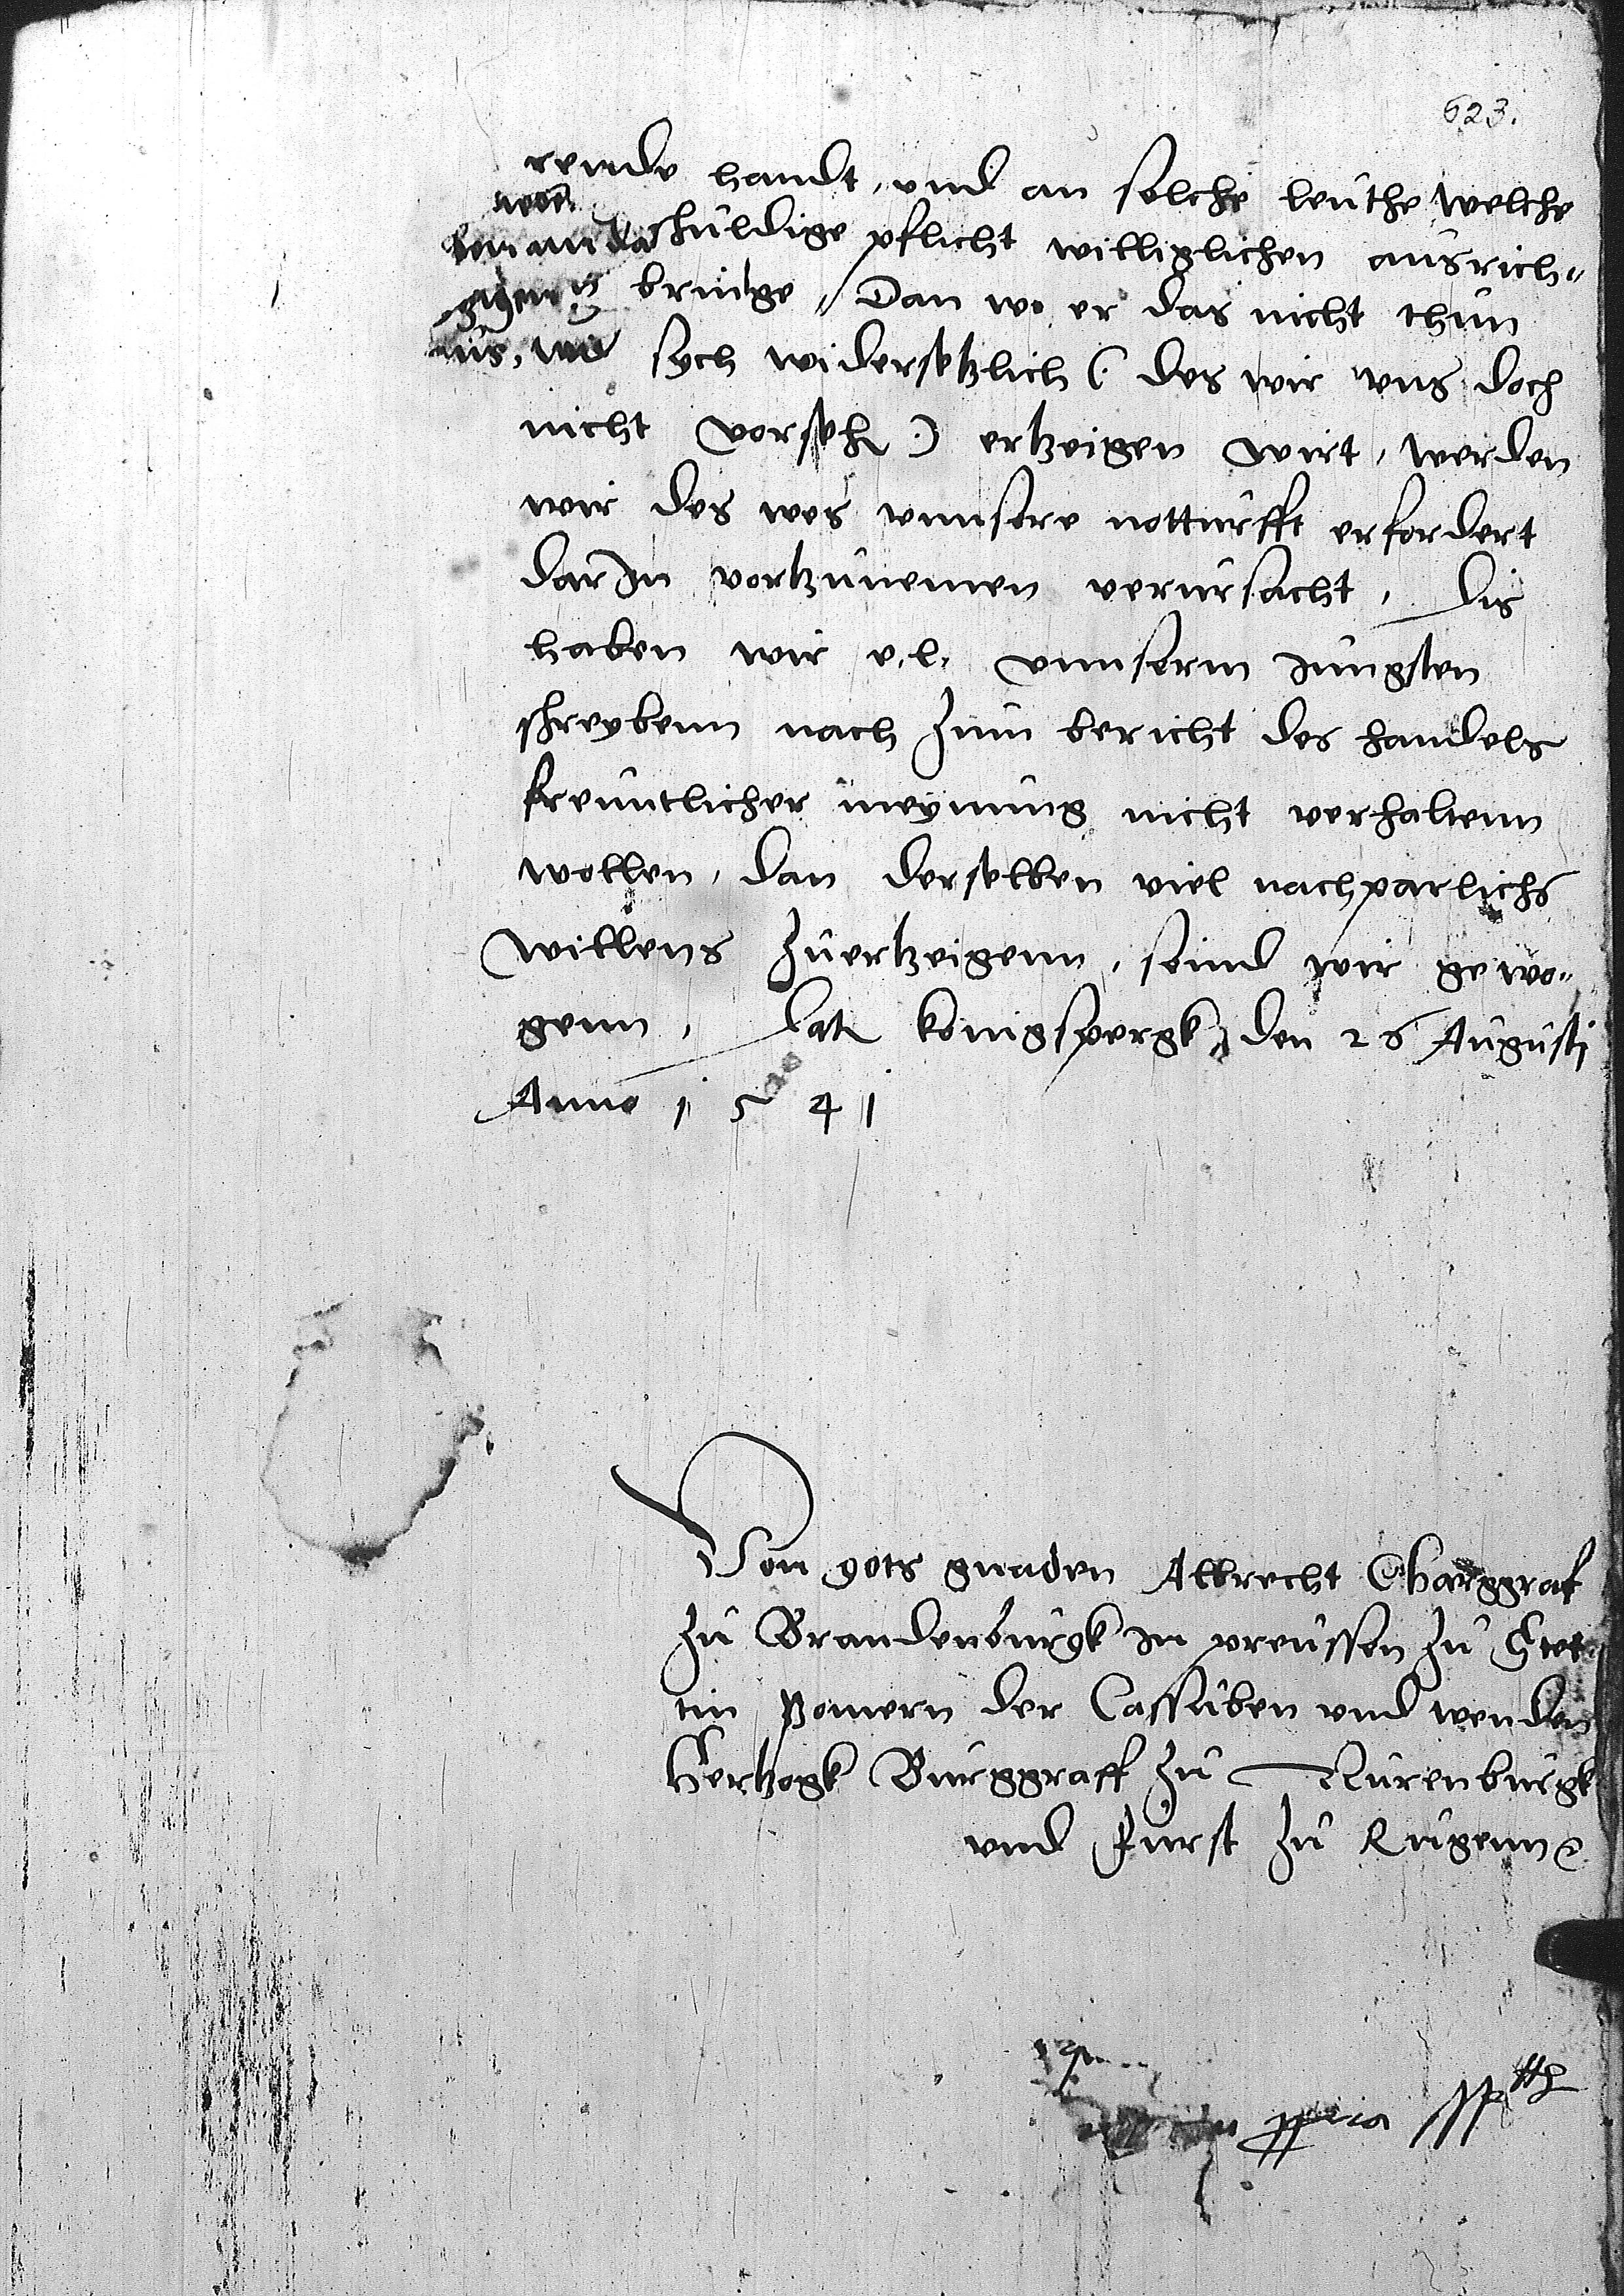 623.
rende handt, und an solche leuthe welche
schuldige pflicht williglichen ausrich„
bringe, Dan wo er das nicht thun
und sych widersetzlich (: des wir vns doch
nicht vorsehn :) ertzeigen wirt, werden
wir des wes vnnsere notturfft erfordert
darIn vortzunemen verursacht, Dis
haben wir e. l. vnnserm Jungsten
schreybenn nach zum bericht des handels
freuntlicher meynung nicht verhaltenn
wollen, dan derselben viel nachparlichs
willens zuertzeigenn, seind wir gewo„
genn, Dat konigspergk den 26 Augusti
Anno 1541
Von gots gnaden Albrecht Marggraf
zu Brandenburgk in preussen zu Stet
tin Pomern der Cassuben vnd wenden
Hertzogk Burggraff zu Nurenburgk
vnd Furst zu Rugenn
ppria sspt